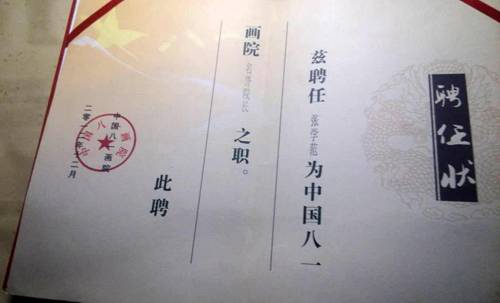 聘任状
兹聘任张学范为中国八一
画院名誉院长之职。
此聘
中国八一画院